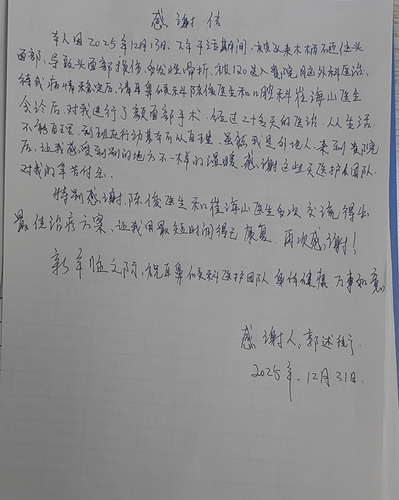 感谢信
本人因2025年12月13日下午干活期间,被皮来木柄砸住头
面部,导致头面部损伤,多发性骨折,被120送入贵院脑外科医治,
待我病情稳定后,请耳鼻喉科陈俊医生和口腔科崔海山医生
会诊后,对我进行了颌面部手术,经过2十多天的医治,从生活
不能自理,到现在行动基本可以自理,虽然我是外地人,来到贵院
后,让我感受到别的地方不一样的温暖,感谢这些天医护团队
对我的辛苦付出。
特别感谢陈俊医生和崔海山医生多次交谈得出
最佳治疗方案,让我用最短时间得已康复,再次感谢!
新年临之际,祝耳鼻喉科医护团队身体健康,万事如意
感谢人:郭述
2025年.12月31日.